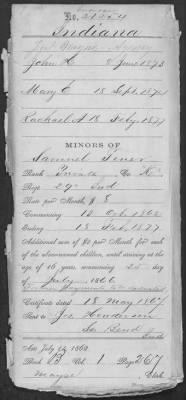 No. 21254
Indiana
Fort Wayne Agency
John H 8 June 1873
Mary E 18 Sept. 1871
Rachael A 18 Feby 1877
MINORS OF
Samuel
Rank Private Co K
Regt 29 Ind
Rate per Month $ 8
Commencing 10 Oct 1862
Ending 18 Feb 1877
Additional sum of $2 per Month for each
of the abovenamed children, until arriving at the
age of 16 years, commencing 25 day
of July 1866
Certificate dated 18 May 1867
Sent to Jos Henderson
So Bend
Act July 14, 1862
Book B Vol. 1 Page 267
Clerk